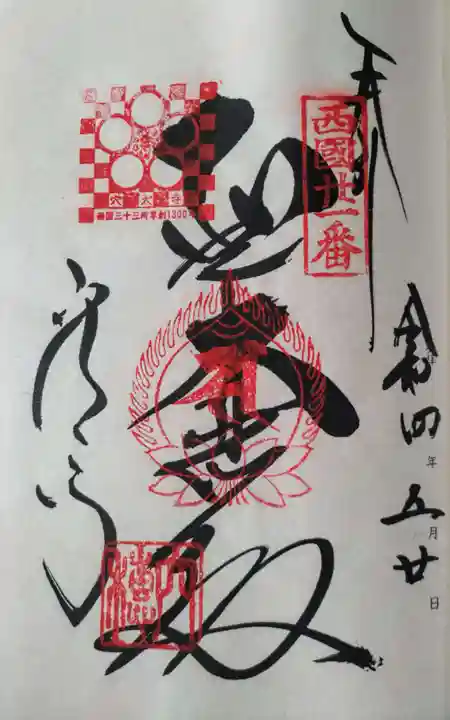 奉拝
西國廿一番
令和四年五月廿日
聖大悲殿
穴太寺
西国三十三所草創1300年
穴太寺